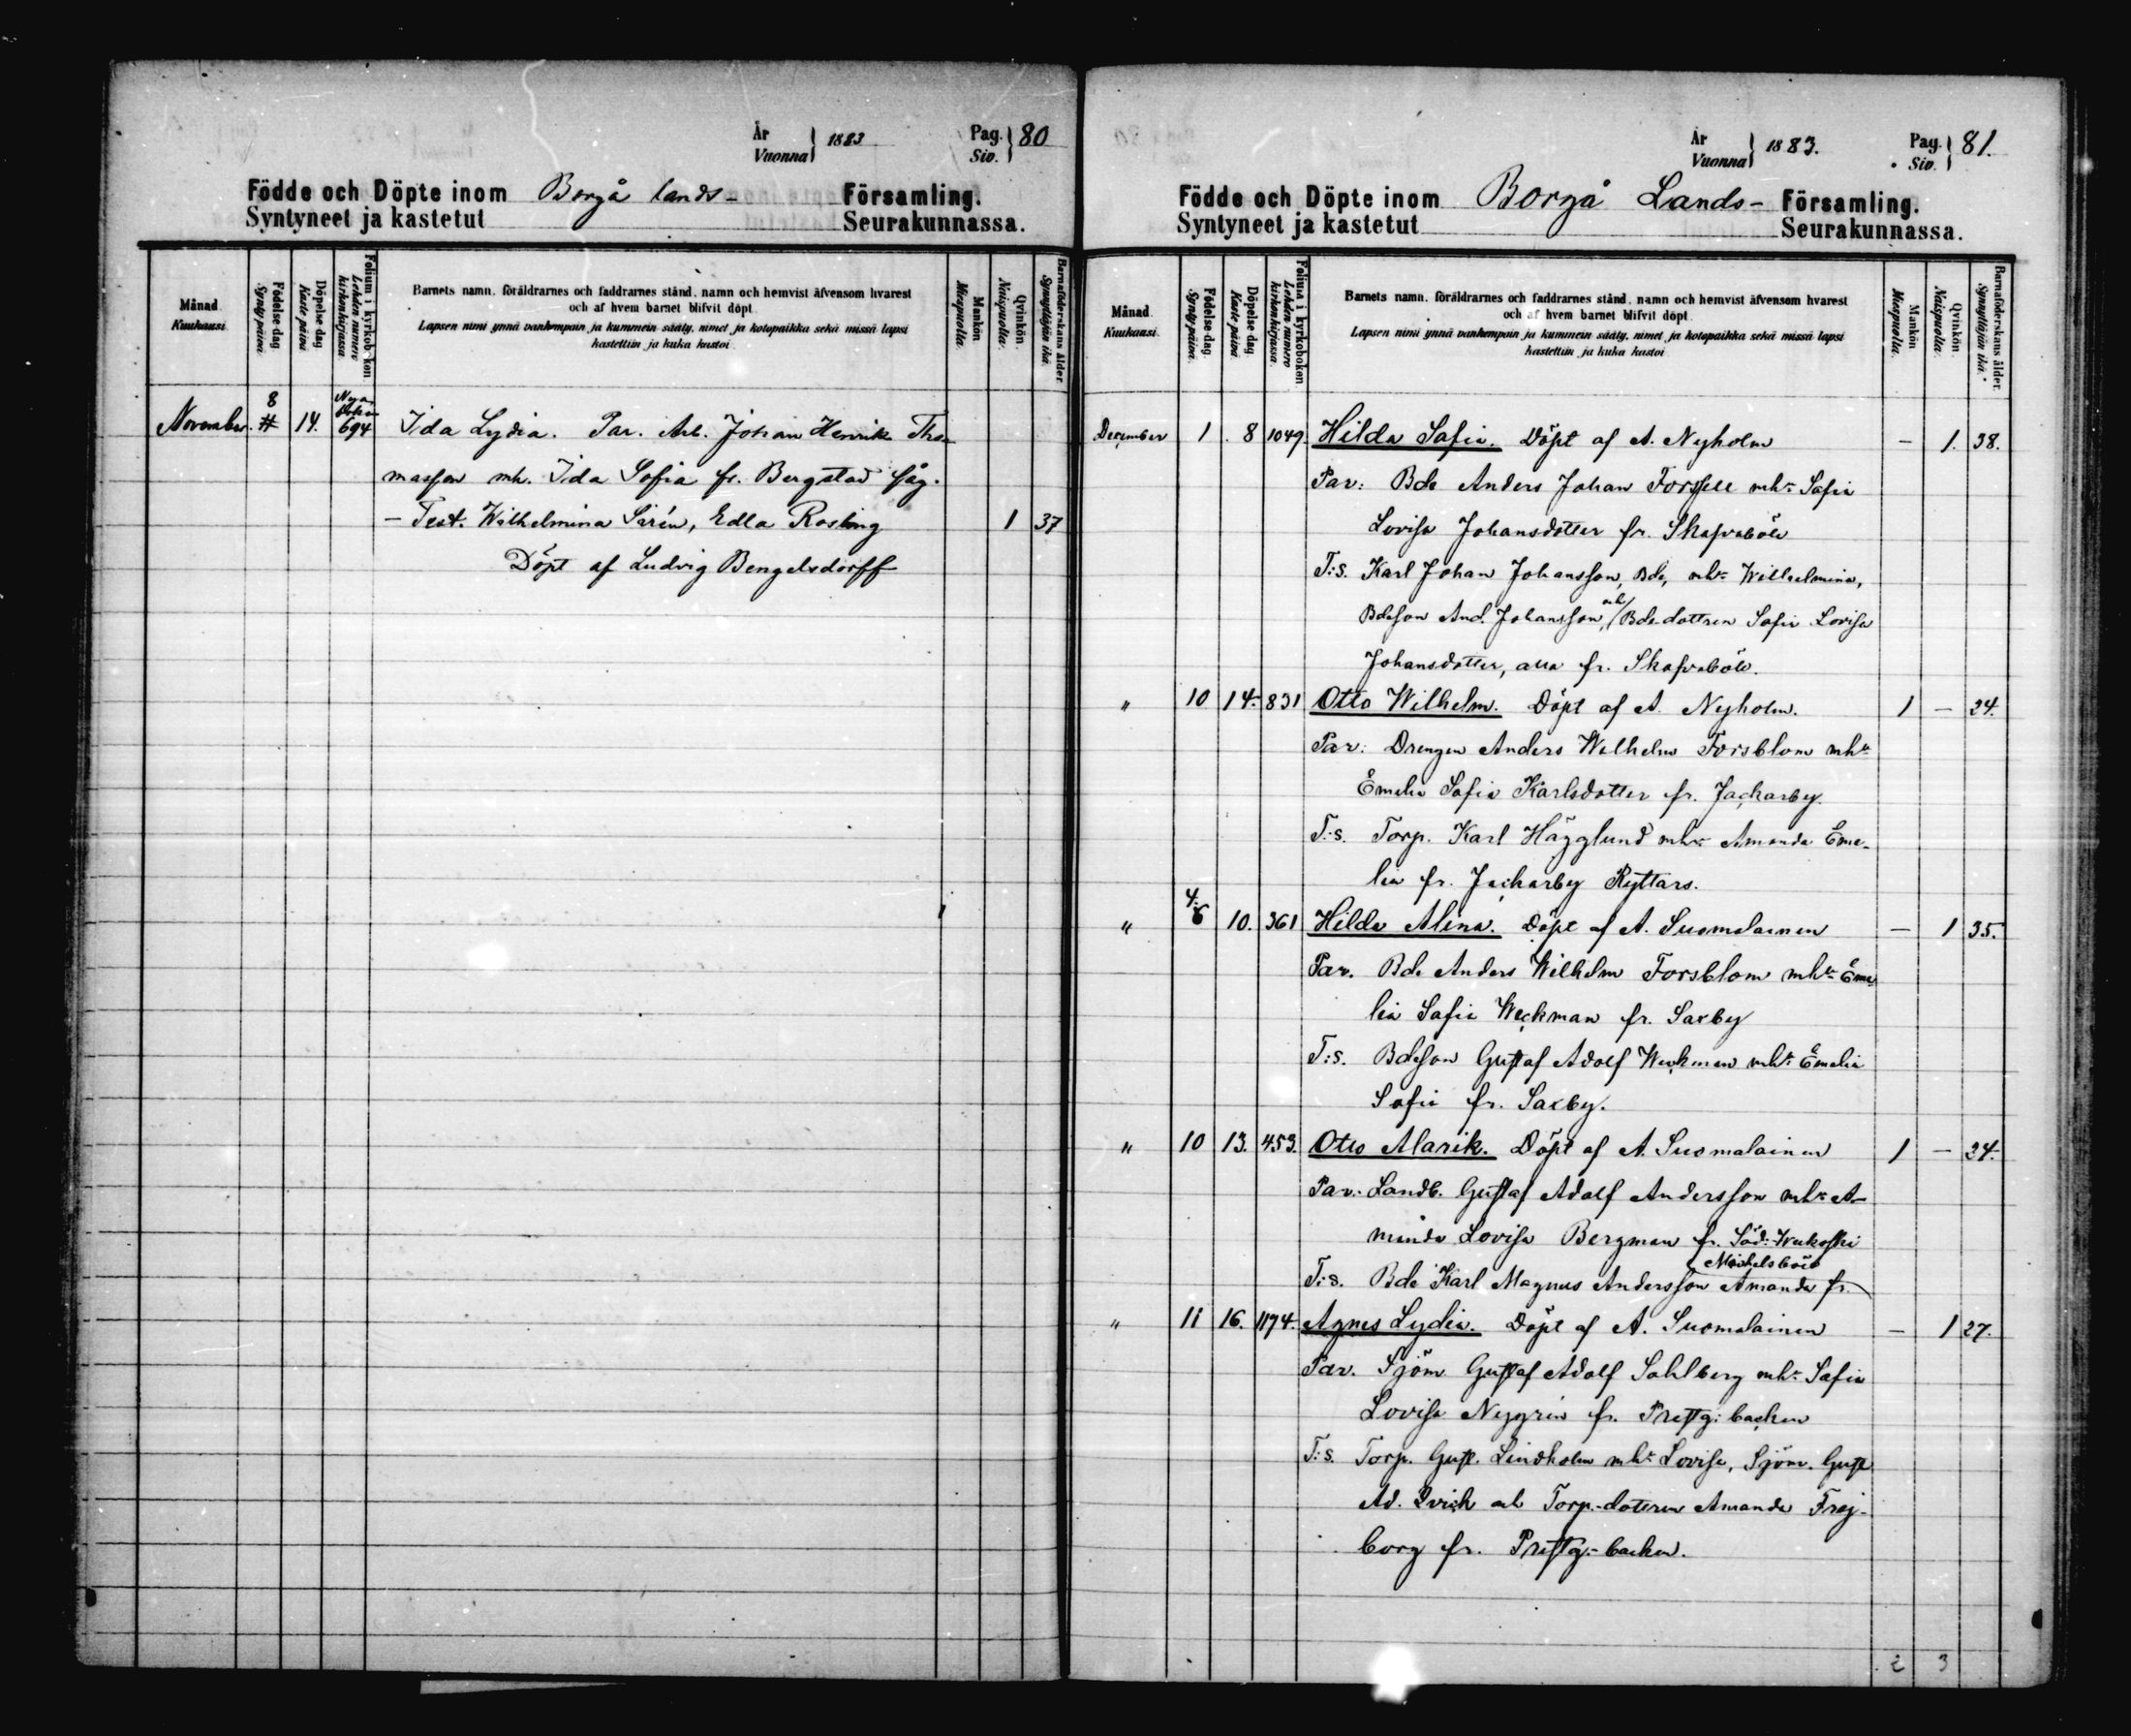 År
Vuonna } 1883
Pag.
Siv. } 80
Födde och Döpte inom Borgå lands- Församling.
Syntyneet ja kastetut Seurakunnassa.
Månad Kuukausi
Födelse dag Synty päivä
Döpelse dag Kaste päivä
Folium i kyrkoboken Lehden numero kirkonkirjassa
Barnets namn, föräldrarnes och faddrarnes stånd, namn och hemvist äfvensom hvarest
och af hvem barnet blifvit döpt.
Lapsen nimi ynnä vanhempain ja kummein sääty, nimet ja kotopaikka sekä missä lapsi
kastettiin ja kuka kastoi.
Mankön Miespuolia.
Qvinkön Naispuolia.
Barnaföderskans ålder Synnyttäjän ikä.
November 8 14. 694 Ida Lydia. Par. Arb. Johan Henrik Tho-
masson mh. Ida Sofia fr. Bergstad såg.
- Test. Wilhelmina Sirén, Edla Rosling 1 37
Döpt af Ludvig Bengelsdorff
År
Vuonna } 1883.
Pag.
Siv. } 81.
Födde och Döpte inom Borgå Lands- Församling.
Syntyneet ja kastetut Seurakunnassa.
Månad Kuukausi.
Födelse dag Synty päivä.
Döpelse dag Kaste päivä
Folium i kyrkoboken Lehden numero kirkonkirjassa
Barnets namn, föräldrarnes och faddrarnes stånd, namn och hemvist äfvensom hvarest
och af hvem barnet blifvit döpt.
Lapsen nimi ynnä vanhempain ja kummein sääty, nimet ja kotopaikka sekä missä lapsi
kastettiin ja kuka kastoi
Mankön Miespuolia.
Qvinkön Naispuolia.
Barnaföderskans ålder Synnyttäjän ikä.
December 1 8 1049 Hilda Sofia. Döpt af A. Nyholm - 1. 38.
Par: Bde Anders Johan Forssell mhr Sofia
Lovisa Johansdotter fr. Skafvaböle
T:s. Karl Johan Johansson, Bde, mhr Wilhelmina,
Bdeson And. Johansson, och Bde-dottren Sofia Lovisa
Johansdotter, alla fr. Skafvaböle.
" 10 14. 831 Otto Wilhelm. Döpt af A. Nyholm. 1 - 24.
Par: Drengen Anders Wilhelm Forsblom mhr
Emelia Sofia Karlsdotter fr. Jackarby.
T:s. Torp. Karl Hägglund mhr Amanda Eme-
lia fr. Jackarby Ryttars.
" 4. 6 10. 361 Hilda Alina. Döpt af A. Suomalainen - 1 35.
Par. Bde Anders Wilhelm Forsblom mhr Eme-
lia Sofia Weckman fr. Saxby
T:s. Bdeson Gustaf Adolf Weckman mhr Emelia
Sofia fr. Saxby.
" 10 13. 453. Otto Alarik. Döpt af A. Suomalainen 1 - 24.
Par: Landb. Gustaf Adolf Andersson mhr A-
manda Lovisa Bergman fr. Söd: Wekoski
Mickelsböle
T:s. Bde Karl Magnus Andersson Amanda fr.
" 11 16. 1174. Agnes Lydia. Döpt af A. Suomalainen - 1 27.
Par. Sjöm Gustaf Adolf Sahlberg mhr Sofia
Lovisa Nygrén fr. Prestg: backen
T:s. Torp. Gust. Lindholm mhr Lovisa, Sjöm. Gust
Ad. Qvick och Torp.-dottren Amanda Frej-
borg fr. Prestg:-backen.
2 3